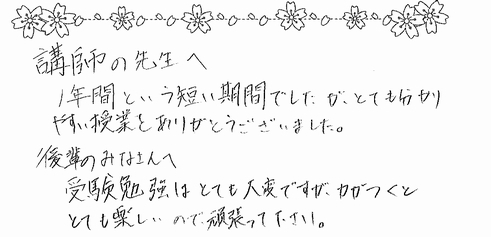 講師の先生へ
1年間という短い期間でしたが、とても分かり
やすい授業をありがとうございました。
後輩のみなさんへ
受験勉強はとても大変ですが、力がつくと
とても楽しいので頑張って下さい。